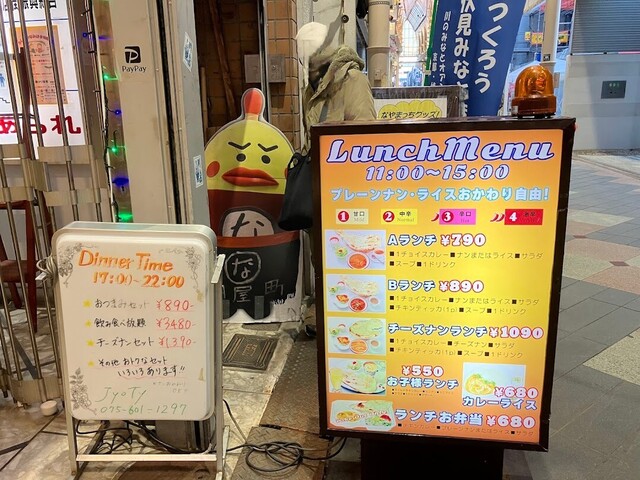 つくろう
伏見みなと
川のみなとオア
PayPay
あられ
なやまっちグッズ!
な
な屋町
Dinner Time
17:00~22:00
おつまみセット ¥890-
飲み食べ放題 ¥3480-
チーズナンセット ¥1,390-
その他 おトクなセット
いろいろあります!!
JyoTy
075-601-1297
Lunch Menu
11:00~15:00
プレーンナン・ライスおかわり自由!
1 甘口
2 中辛 Normal
3 辛口
4
Aランチ ¥790
■1チョイスカレー■ナンまたはライス■サラダ
■スープ■1ドリンク
Bランチ ¥890
■1チョイスカレー■ナンまたはライス■サラダ
■チキンティッカ(1p)■スープ■1ドリンク
チーズナンランチ ¥1090
■1チョイスカレー■チーズナン■サラダ
■チキンティッカ(1p)■スープ■1ドリンク
¥550
お子様ランチ
¥680
カレーライス
ランチお弁当 ¥680